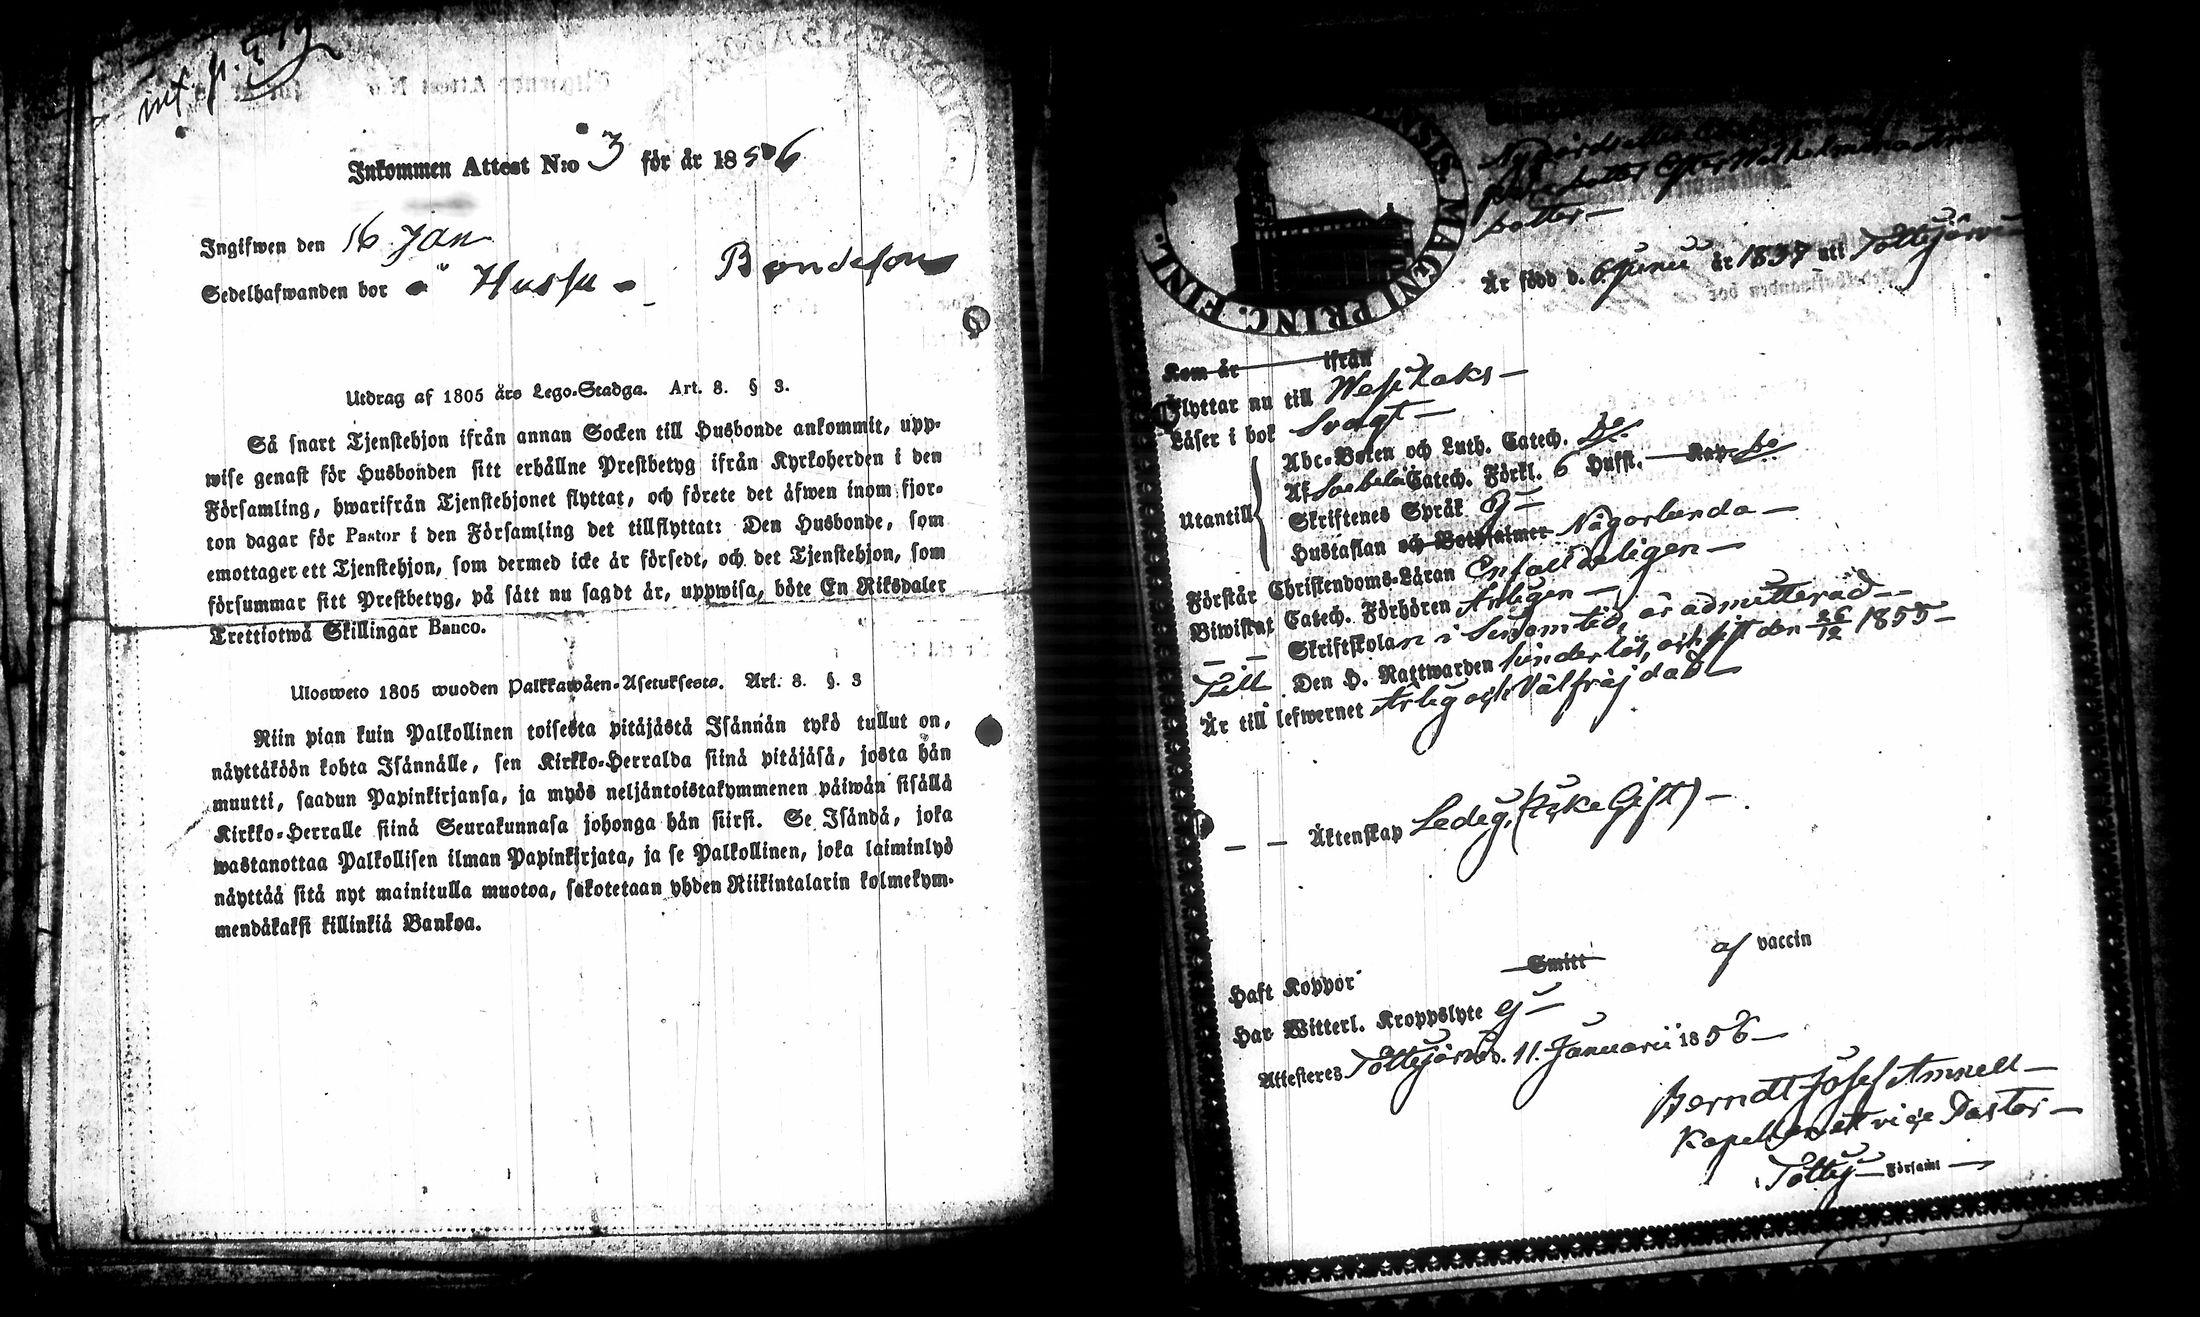 inf. p. 579
Inkommen Attest N:o 3 för år 1856
Ingifwen den 16 Jan
Sedelhafwanden bor å Hussu Bondeson
Utdrag af 1805 års Lego-Stadga. Art. 8. § 3.
Så snart Tjenstehjon ifrån annan Socken till Husbonde ankommit, upp-
wise genast för Husbonden sitt erhållne Prestbetyg ifrån Kyrkoherden i den
Församling, hwarifrån Tjenstehjonet flyttat, och förete det äfwen inom fjor-
ton dagar för Pastor i den Församling det tillflyttat: Den Husbonde, som
emottager ett Tjenstehjon, som dermed icke är försedt, och det Tjenstehjon, som
försummar sitt Prestbetyg, på sätt nu sagdt är, uppwisa, böte En Riksdaler
Trettiotwå Skillingar Banco.
Ulosweto 1805 wuoden Palkkawäen-Asetuksesta. Art. 8. §. 3
Niin pian kuin Palkollinen toisesta pitäjästä Isännän tykö tullut on,
näyttäköön kohta Isännälle, sen Kirkko-Herralda siinä pitäjäsä, josta hän
muutti, saadun Papinkirjansa, ja myös neljäntoistakymmenen päiwän sisällä
Kirkko-Herralle siinä Seurakunnasa johonga hän siirsi. Se Isändä, joka
wastanottaa Palkollisen ilman Papinkirjata, ja se Palkollinen, joka laiminlyö
näyttää sitä nyt mainitulla muotoa, sakotetaan yhden Riikintalarin kolmekym-
mendäkaksi killinkiä Bankoa.
MAGNI PRINC. FINL.
dotter
Är född d. 6 Junii år 1837 uti Tottijärvi
Kom år ifrån
Flyttar nu till Wesilaks
Läser i bok Svagt
Utantill
Abc-Boken och Luth. Catech. do
Af Soebelii Catech. Förkl. 6 Hufst. Kap. do
Skriftenes Språk Ej
Hustaflan och Botpsalmer Någorlunda
Förstår Christendoms-Läran Enfaldeligen
Biwistat Catech. Förhören Årligen
Skriftskolan i sinom tid, är admitterad
Till Den H. Nattwarden sist den 26/12 1855
Är till lefwernet Ärlig och Välfräjdad
Äktenskap Ledig, (Icke Gift)
Haft Koppor Smitt af vaccin
Har Witterl. Kroppslyte Ej
Attesteres Tottijärvi d. 11. Januarii 1856
Berndt Josef Amnell
Kapellan et vice Pastor
Tottij. Församl